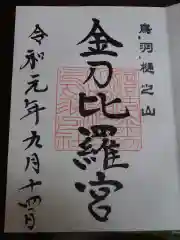 鳥洞樋之山
金刀比羅宮
令和元年九月十四日